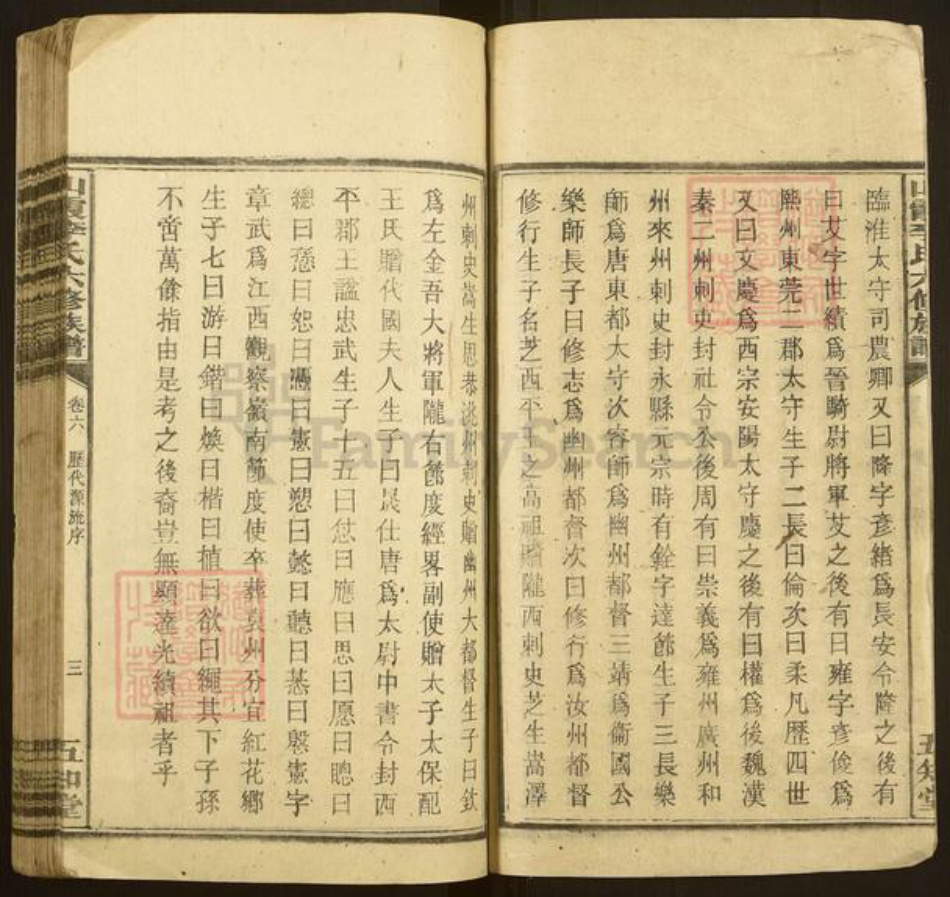 臨淮太守司農卿又曰隆字彥緒爲長安令隆之後有
曰艾字世績爲晉騎尉將軍艾之後有曰雍字彥俊爲
熙州東莞二郡太守生子二長曰倫次曰柔凡歷四世
又曰文慶爲西宗安陽太守慶之後有曰權爲後魏漢
秦二州刺史封社令公後周有曰崇義爲雍州廣州和
州來州刺史封永縣元宗時有銓字達節生子三長樂
師爲唐東都太守次容師爲幽州都督三靖爲衞國公
樂師長子曰修志爲幽州都督次曰修行爲汝州都督
修行生子名芝西平王之高祖贈隴西刺史芝生嵩澤
州刺史嵩生思恭洮州刺史贈幽州大都督生子曰欽
爲左金吾大將軍隴右節度經畧副使贈太子太保配
王氏贈代國夫人生子曰晟仕唐爲太尉中書令封西
平郡王諡忠武生子十五曰愿曰應曰思曰愿曰聰曰
總曰愻曰恕曰憑曰憲曰愬曰懿曰聽曰惎曰慇憲字
章武爲江西觀察嶺南節度使卒葬袁州分宜紅花鄉
生子七曰游曰鍇曰煥曰楷曰植曰欲曰繩其下子孫
不啻萬餘指由是考之後裔豈無顯達光續祖者乎
山霞李氏六修族譜
卷六 歷代源流序
三
五知堂
FamilySearch